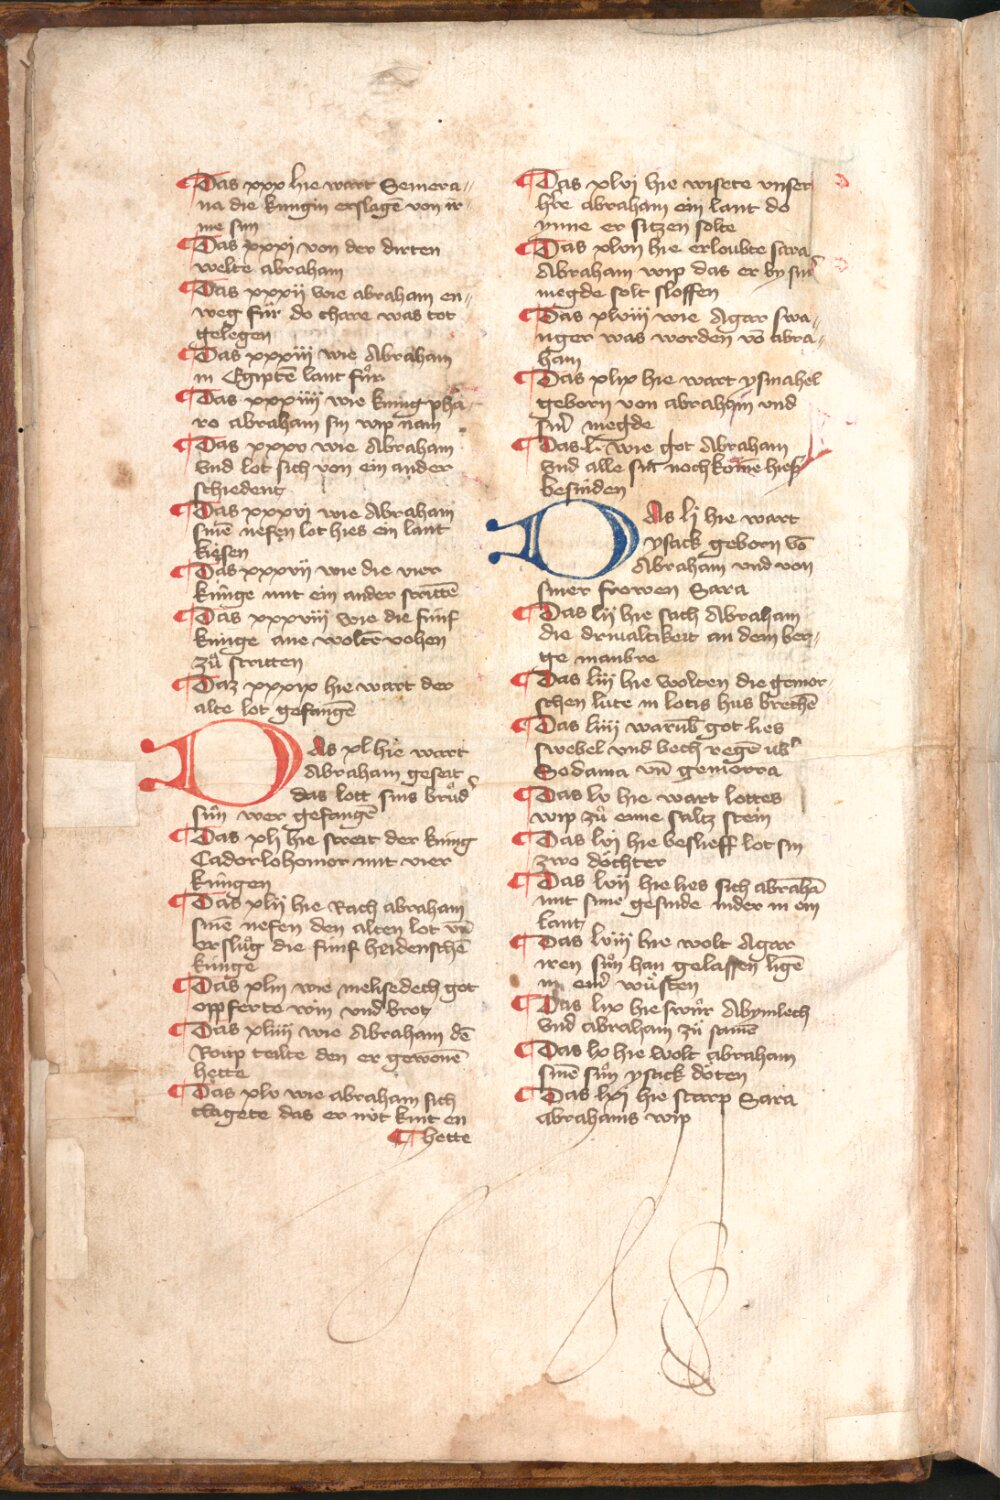 Das xxx hie wart Semera//
na die kungin erslagē von ir
me sun
Das xxxi von der dirten
welte abraham
Das xxxii wie abraham en//
weg fůr do thare was tot
gelegen
Das xxxiii wie Abraham
in Egiptē lant fůr
Das xxxiiii wie kunig pha
ro abraham sin wip nam
Das xxxv wie Abraham
vnd lot sich von ein ander
schiedent
Das xxxvi wie Abraham
sinē nefen lot hies ein lant
kiesen
Das xxxvii wie die vier
kúnge mit ein ander strittē
Das xxxviii wie die funf
kúnige ane woltē vohen
zů stritten
Daz xxxix hie wart der
alte lot gefangē
Das xl hie wart
Abraham geseit
das lott sins brůd'
sůn wer gefangē
Das xli hie streit der kúnig
Cadorlohomor mit vier
kúngen
Das xlii hie Rach abraham
sinē nefen den alten lot vn̄
ersluͦg die funf heidenschē
kúnge
Das xliii wie melisedech got
oppferte win vnd brot
Das xliiii wie Abraham dē
Roup teilte den er gewonē
hette
Das xlv wie abraham sich
clagete das er nút kint en
hette
Das xlvi hie wisete vnser
h're abraham ein lant do
ynne er sitzen solte
Das xlvii hie erloubte sara
Abraham wip das er by sin'
megde solt sloffen
Das xlviii wie Agar swa//
nger was worden vō abra//
ham
Das xlix hie wart ysmahel
geborn von abraham vnd
sin' megde
Das l. wie got Abraham
vnd alle sin nochkomē hies
besniden
DAs lj hie wart
ysack geborn vō
Abraham vnd von
siner frowen Sara
Das lij hie sach Abraham
die driualtikeit an dem ber//
ge manbre
Das liij hie wolten die gemor//
schen lúte in lotis hus brechē
Das liiij warūb got lies
swebel vnd bech regē úb'
Sodama vn̄ gemorra
Das lv hie wart lottes
wip zů eime saltz stein
Das lvj hie beslieff lot sin
zwo döchter
Das lvij hie lies sich abrahā
mit sime gesinde nider in ein
lant
Das lviij hie wolt Agar
iren sůn han gelassen ligē
in ein' wůsten
Das lix hie swůr Abymlech
vnd abraham zů samē
Das lx hie wolt abraham
sinē sůn ysack döten
Das lxj hie starp Sara
abrahams wip